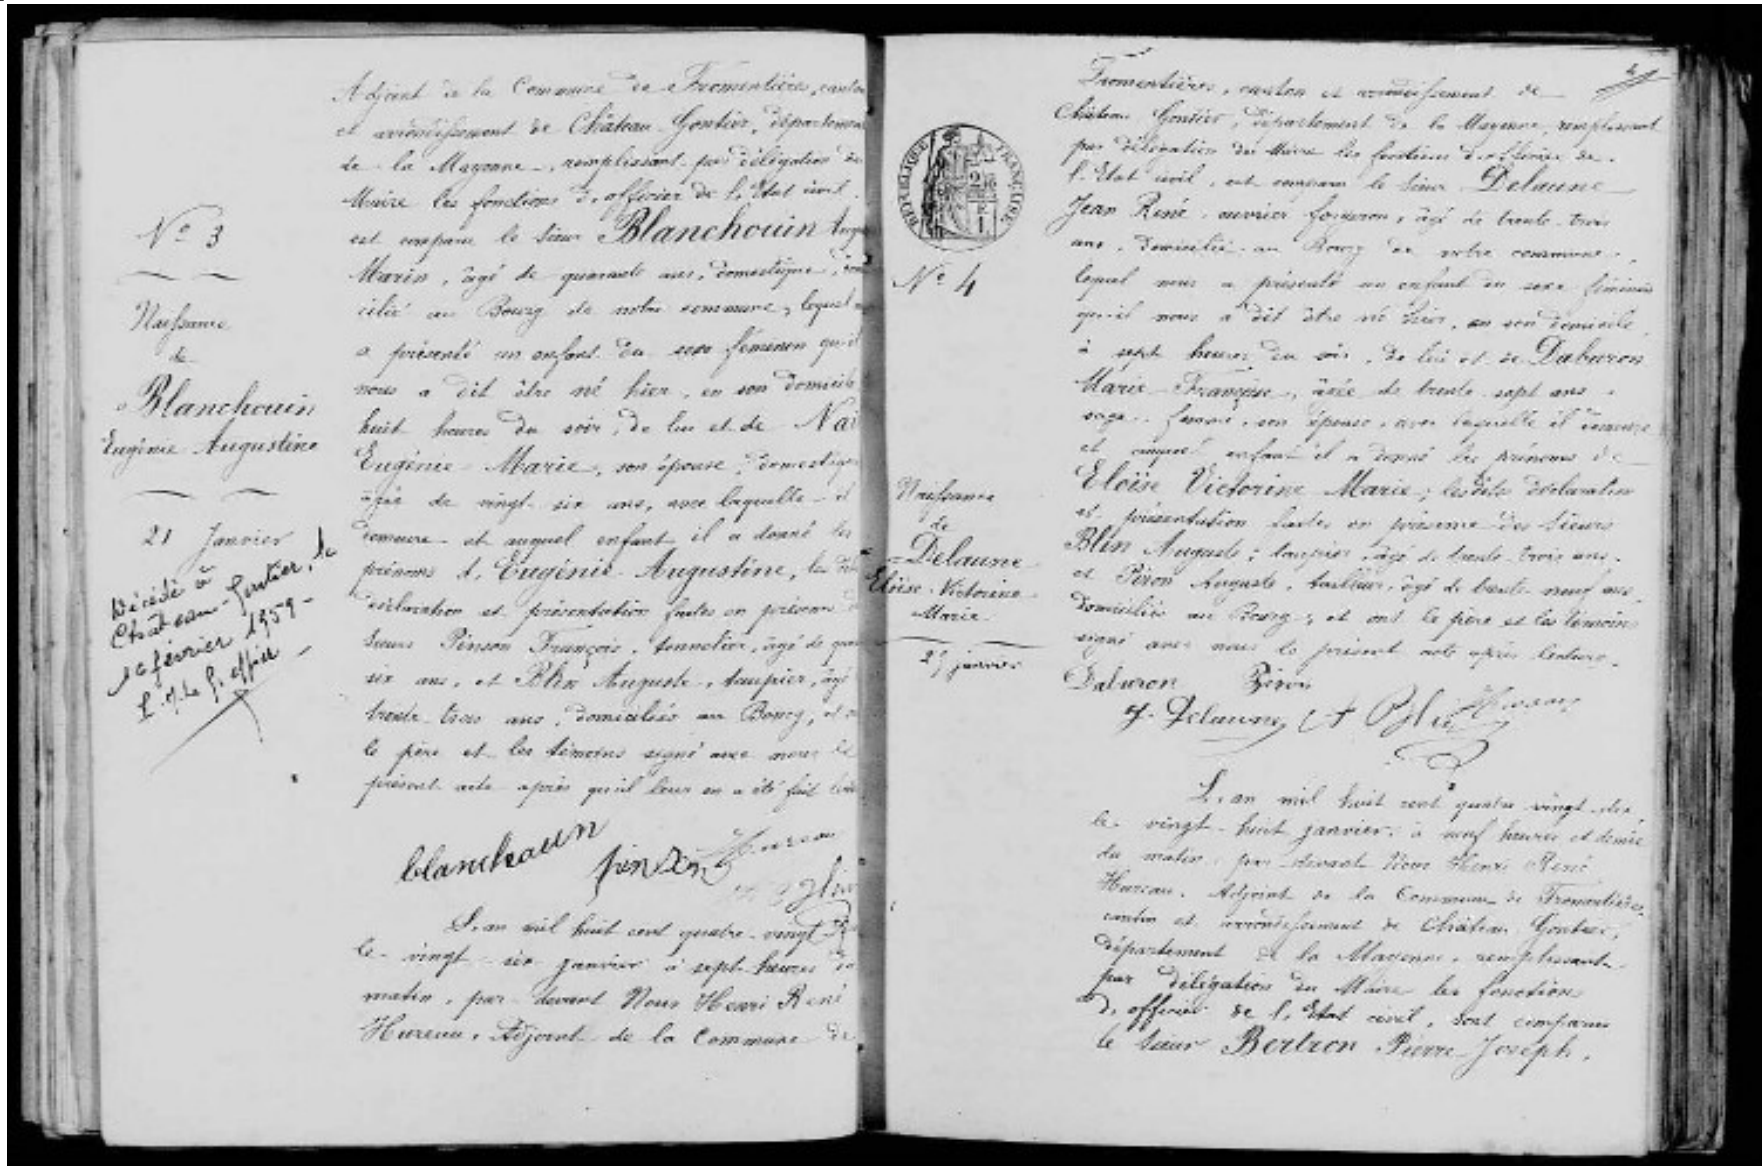 Adjoint de la Commune de Fromentières, canton
et arrondissement de Château-Gontier, département
de la Mayenne, remplissant par délégation du
Maire les fonctions d'officier de l'Etat civil.
est comparu le sieur Blanchouin
Marin, âgé de quarante ans, domestique,
cilié au Bourg de notre commune, lequel
a présenté un enfant du sexe féménen qu'il
nous a dit être né hier, en son domicile
huit heures du soir, de lui et de
Eugénie Marie, son épouse, domestique
âgée de vingt-six ans, avec laquelle il
demeure et auquel enfant il a donné les
prénoms d'Eugénie Augustine, les
déclaration et présentation faites en présence
sieurs Pinson François, tonnelier, âgé de
six ans, et Blin Auguste, taupier, âgé
trente-trois ans, domiciliés au Bourg, et
le père et les témoins signé avec nous le
présent acte après qu'il leur en a été fait
blanchouin pinson Hureau
Blin
L'an mil huit cent quatre-vingt
le vingt-six janvier à sept heures du
matin, par devant Nous Henri René
Hureau, Adjoint de la Commune de
N° 3
Naissance
de
Blanchouin
Eugénie Augustine
21 Janvier
Décédé à
Château-Gontier, le
février 1959
Le Greffier
4
Fromentières, canton et arrondissement de
Château Gontier, département de la Mayenne, remplissant
par délégation du Maire les fonctions d'officier de
l'Etat civil, est comparu le sieur Delaune
Jean René, ouvrier forgeron, âgé de trente-trois
ans, domicilié au Bourg de notre commune,
lequel nous a présenté un enfant du sexe féminin
qu'il nous a dit être né hier, en son domicile
à sept heures du soir, de lui et de Daburon
Marie Françoise, âgée de trente-sept ans
sage-femme, son épouse, avec laquelle il demeure
et auquel enfant il a donné les prénoms de
Eloïse Victorine Marie; lesdites déclaration
et présentation faites en présence des sieurs
Blin Auguste, taupier, âgé de trente-trois ans.
et Piron Auguste, tailleur, âgé de trente-neuf ans,
domiciliés au Bourg, et ont le père et les témoins
signé avec nous le présent acte après lecture.
Daburon Piron
Delaune A Blin Hureau
L'an mil huit cent quatre-vingt-dix,
le vingt-huit janvier, à neuf heures et demie
du matin, par devant Nous Henri René
Hureau, Adjoint de la Commune de Fromentières,
canton et arrondissement de Château Gontier,
département de la Mayenne, remplissant
par délégation du Maire les fonctions
d'officier de l'Etat civil, sont comparu
le sieur Bertron Pierre Joseph,
RÉPUBLIQUE FRANÇAISE
N° 4
Naissance
de
Delaune
Eloïse Victorine
Marie
25 janvier